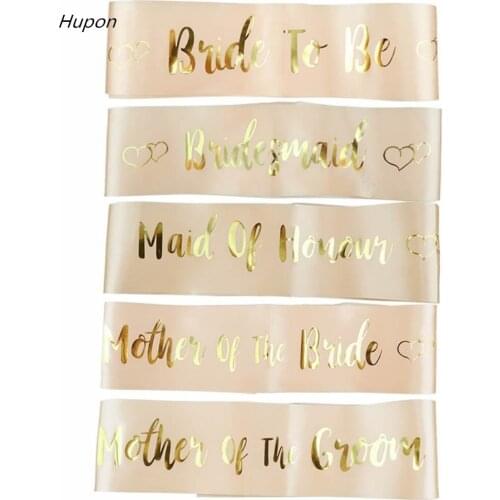 Hupon
Bride To Be
Bridesmaid
Maid Of Honour
Mother Of The Bride
Mother Of The Groom